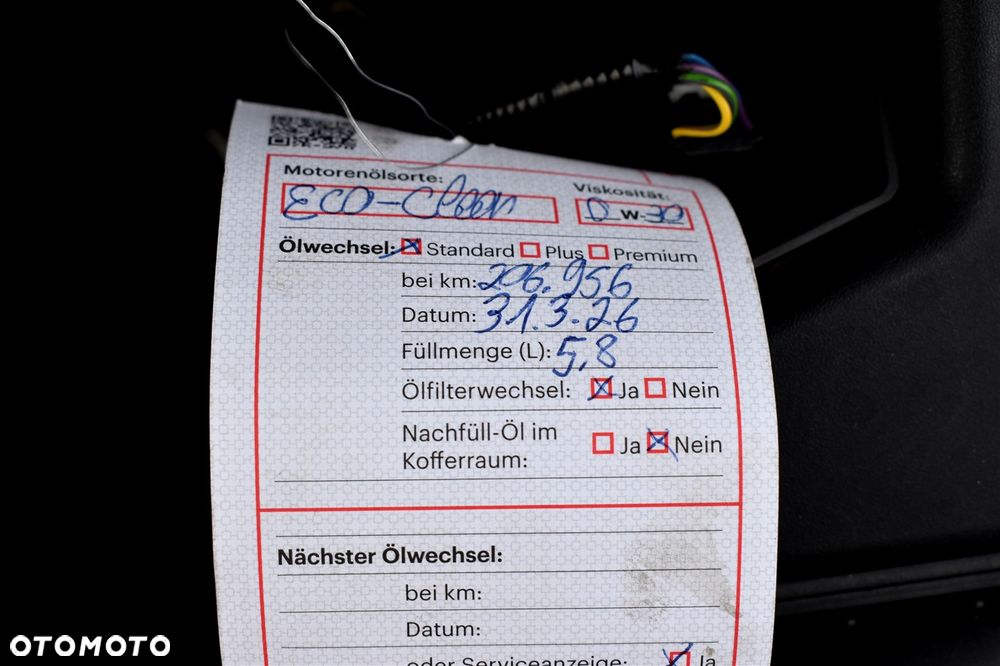 Motorenölsorte:
Viskosität:
ECO-Clean
0 W-30
Ölwechsel: Standard Plus Premium
bei km: 206.956
Datum: 31.3.26
Füllmenge (L): 5,8
Ölfilterwechsel: Ja Nein
Nachfüll-Öl im
Kofferraum: Ja Nein
Nächster Ölwechsel:
bei km:
Datum:
oder Serviceanzeige: Ja
OTOMOTO